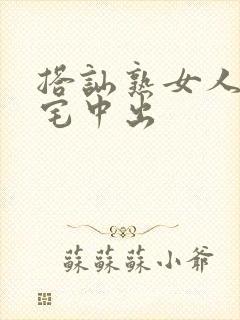 搭訕熟女人
宅中出
蘇蘇蘇小爺